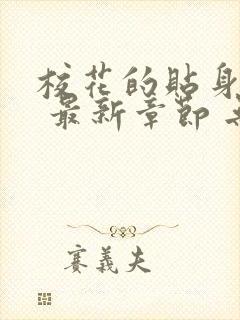 校花的贴身
最新章节
赛义夫